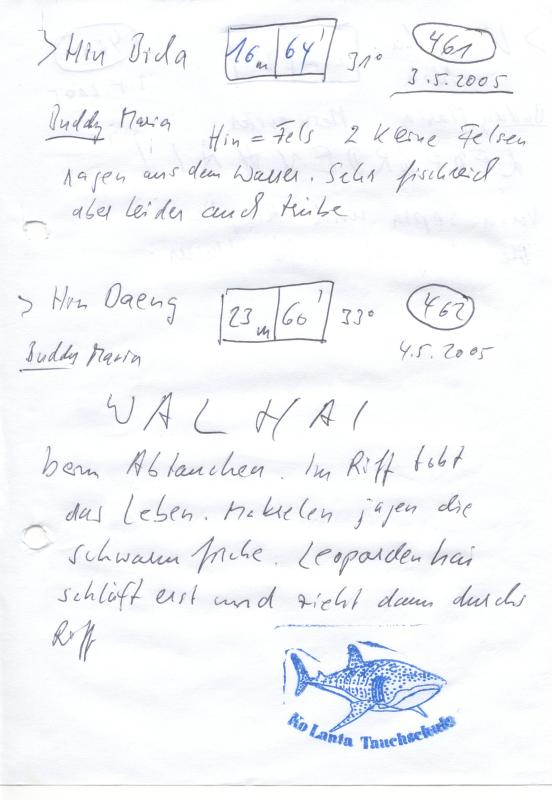 > Hin Bida 16m 64' 31° 461
3.5.2005
Buddy Maria Hin = Fels 2 kleine Felsen
ragen aus dem Wasser. Sehr fischreich
aber leider auch trübe
> Hin Daeng 23m 60' 33° 462
Buddy Maria 4.5.2005
WALHAI
beim Abtauchen. Im Riff tobt
das Leben. Makrelen jagen die
schwarmfische. Leopardenhai
schläft erst und zieht dann durchs
Riff
Ko Lanta Tauchschule